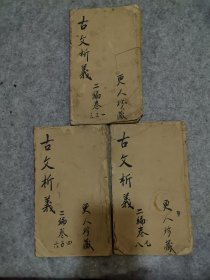 古文析義
二編卷一二三
更人珍藏
古文析義
二編卷四五六
更人珍藏
古文析義
二編卷九八
更人珍藏